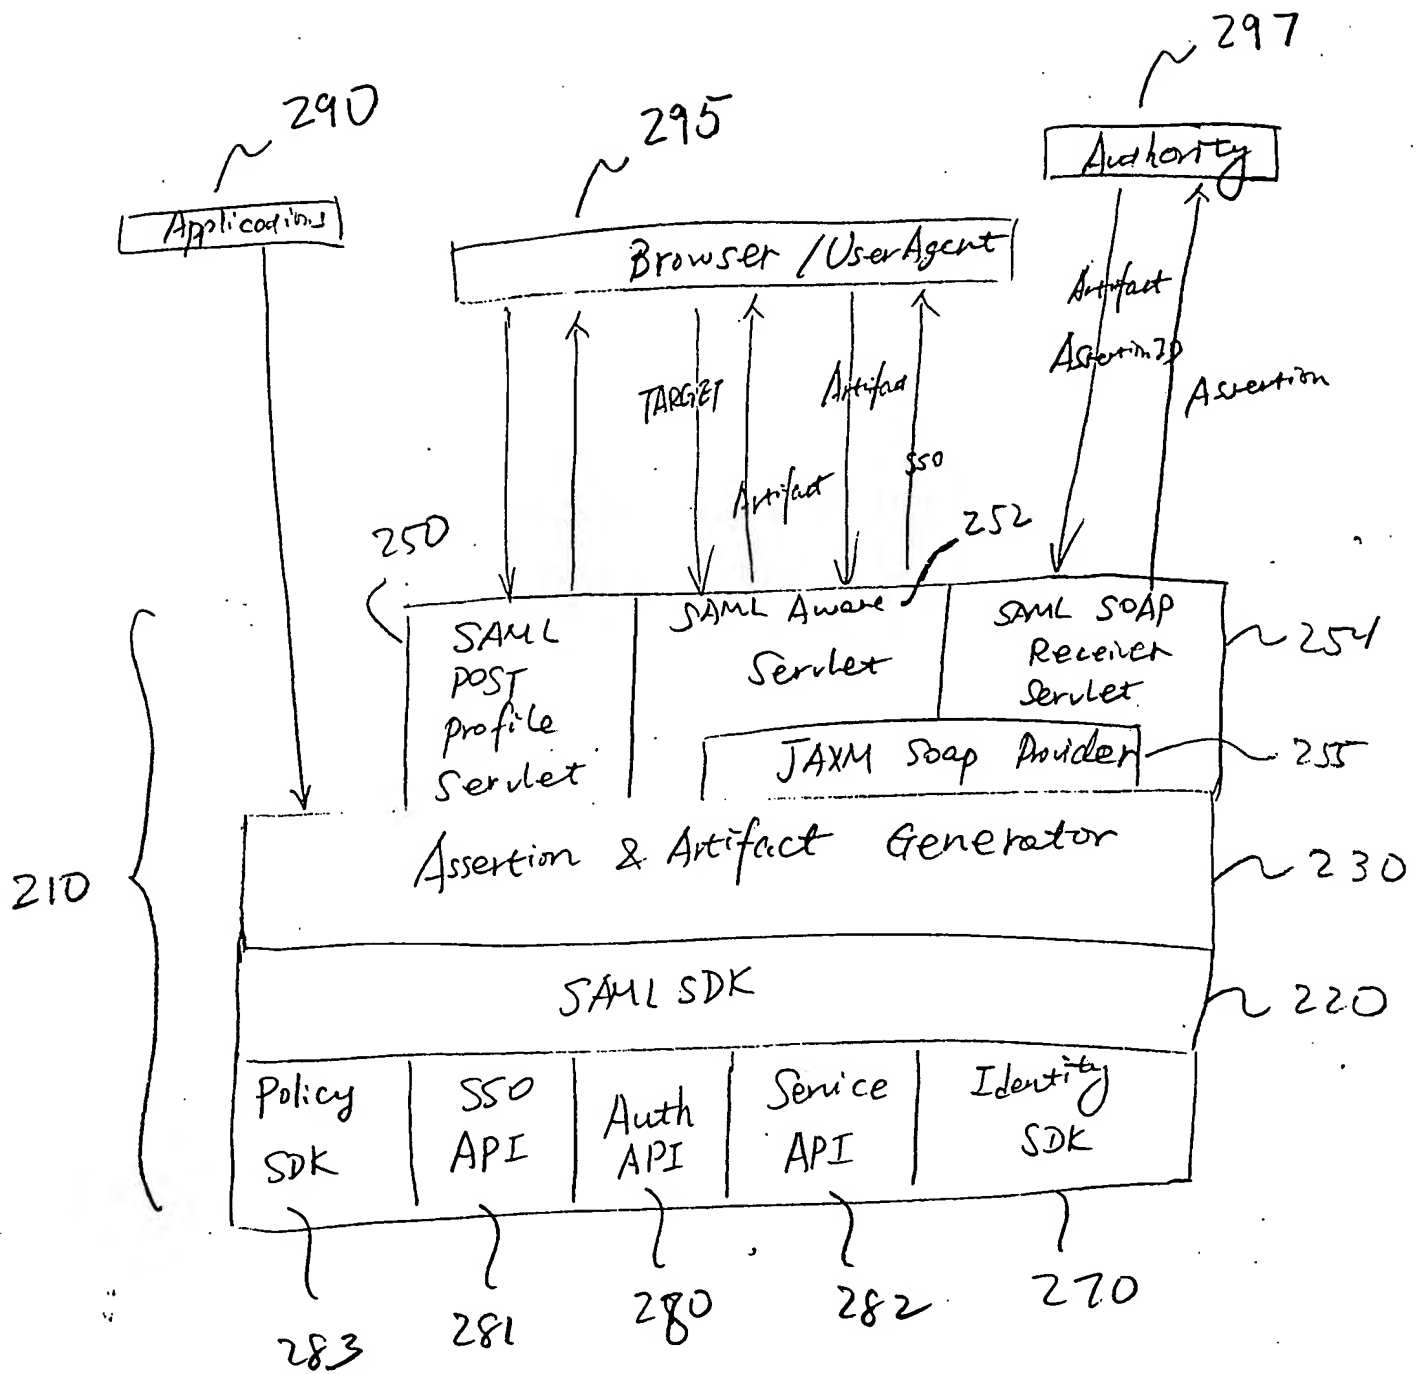 297
290
295
Authority
Applications
Browser / UserAgent
Artifact
AssertionID
Assertion
TARGET
Artifact
SSO
Artifact
250
252
SAML
POST
Profile
Servlet
SAML Aware
Servlet
SAML SOAP
Receiver
Servlet
254
JAXM Soap Provider
255
Assertion & Artifact Generator
210
230
SAML SDK
220
Policy
SDK
SSO
API
Auth
API
Service
API
Identity
SDK
283
281
280
282
270